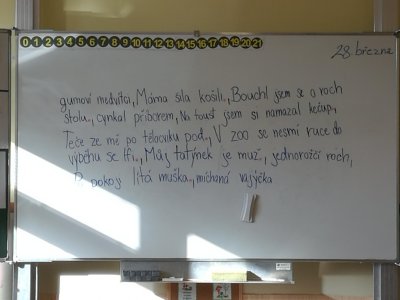 0 1 2 3 4 5 6 7 8 9 10 11 12 13 14 15 16 17 18 19 20 21
28. března
gumoví medvíďci, Máma šila košili, Bouchl jsem se o roh
stolu, cinkal příborem, Na toust jsem si namazal kečup,
Teče ze mě po tělocviku pot, V ZOO se nesmí ruce do
výběhu se lží, Můj tatínek je muž, jednorožčí roh,
P pokoji lítá muška, míchaná vajíčka